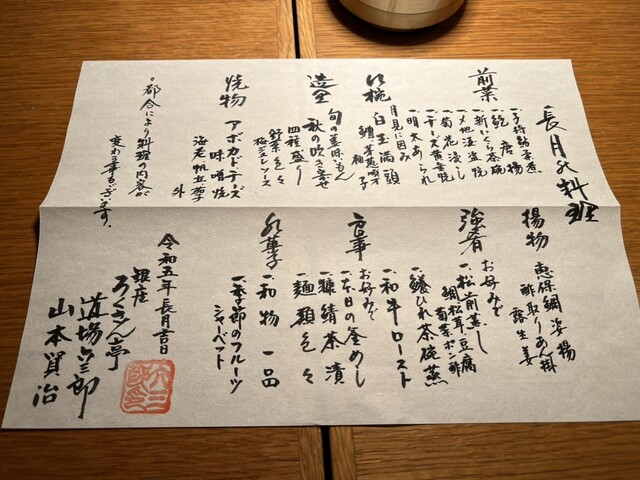 長月の料理
前菜
一、子持鮎茶煮
一、鮑唐揚
一、新いくら茶碗
一、〆地浸し
一、菊花浸し
一、チーズ黄金焼
一、明太あられ
月見に因み
白玉満頭
柚子
造里
旬の美味もん
秋の吹き寄せ
四種盛り
野菜色々
梅ジュレソース
焼物
アボカドチーズ
味噌焼
海老帆立貝
外
◦都合により料理の内容が
変わる事もございます。
揚物
恵保鯛姿揚
酢取りあん掛
露生姜
強肴
お好みで
一、松前蒸し
鯛松茸豆腐
菊菜ポン酢
一、鱶ひれ茶碗蒸
一、和牛ロースト
食事
お好みで
一、本日の釜めし
一、鯖茶漬
一、麺類色々
水菓子
一、和物一品
一、季節のフルーツ
シャーベット
令和五年長月吉日
銀座
ろくさん亭
道場六三郎
山本賢治